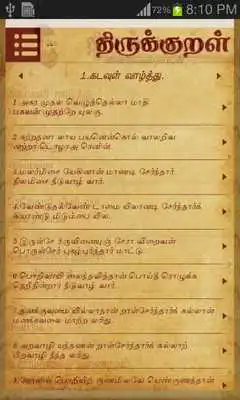 72% 8:10 PM
திருக்குறள்
1.கடவுள் வாழ்த்து.
1 அகர முதல வெழுத்தெல்லா மாதி
பகவன் முதற்றே யுலகு.
2 கற்றதனா லாய பயனென்கொல் வாலறிவ
னற்றா டொழாஅ ரெனின்.
3.மலர்மிசை யேகினான் மாணடி சேர்ந்தார்
நிலமிசை நீடுவாழ் வார்.
4.வேண்டுதல்வேண் டாமை யிலானடி சேர்ந்தார்க்
கியாண்டு மிடும்பை யில.
5.இருள்சே ரிருவினையுஞ் சேரா விறைவன்
பொருள்சேர் புகழ்புரிந்தார் மாட்டு.
6.பொறிவாயி லைந்தவித்தான் பொய்தீ ரொழுக்க
நெறிநின்றார் நீடுவாழ் வார்.
7.தனக்குவமை யில்லாதான் றாள்சேர்ந்தார்க் கல்லான்
மனக்கவலை மாற்ற லரிது.
8.அறவாழி யந்தணன் றாள்சேர்ந்தார்க் கல்லாற்
பிறவாழி நீந்த லரிது.
9.கோளில் பொறியிற் குணமிலவே யெண்குணத்தான்